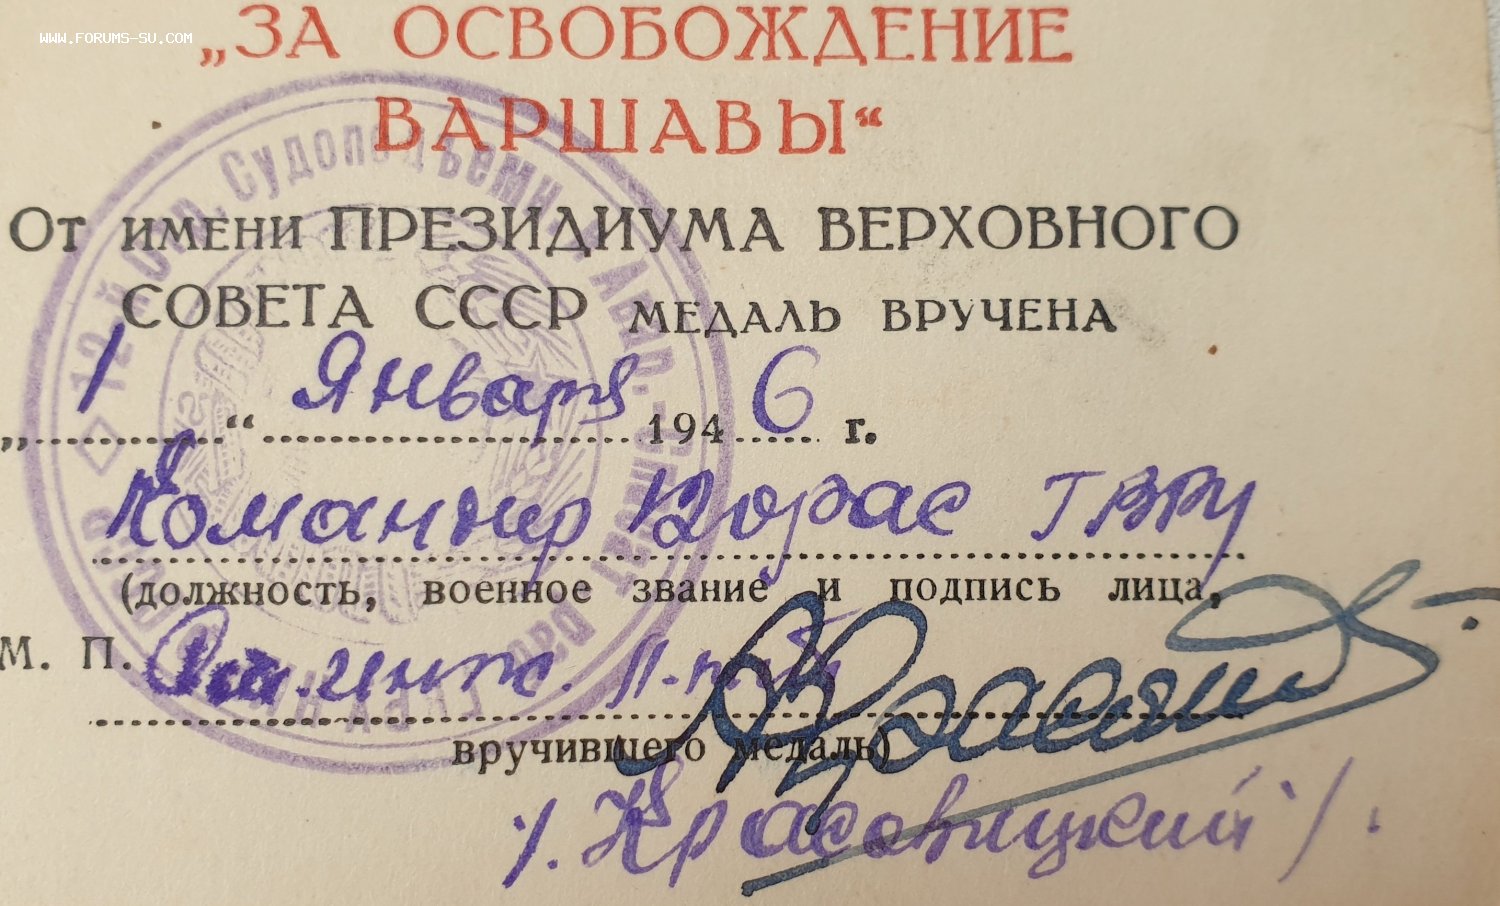 www.forums-su.com
„ЗА ОСВОБОЖДЕНИЕ
ВАРШАВЫ“
От имени ПРЕЗИДИУМА ВЕРХОВНОГО
СОВЕТА СССР МЕДАЛЬ ВРУЧЕНА
„ 1 “ Января 1946 г.
Командир 12 орас ГВВУ
(должность, военное звание и подпись лица,
М. П. инж. п-п
вручившего медаль)
/. Красовицкий /.
12 й Отр. Судоподъемн. Авар.-Спасат